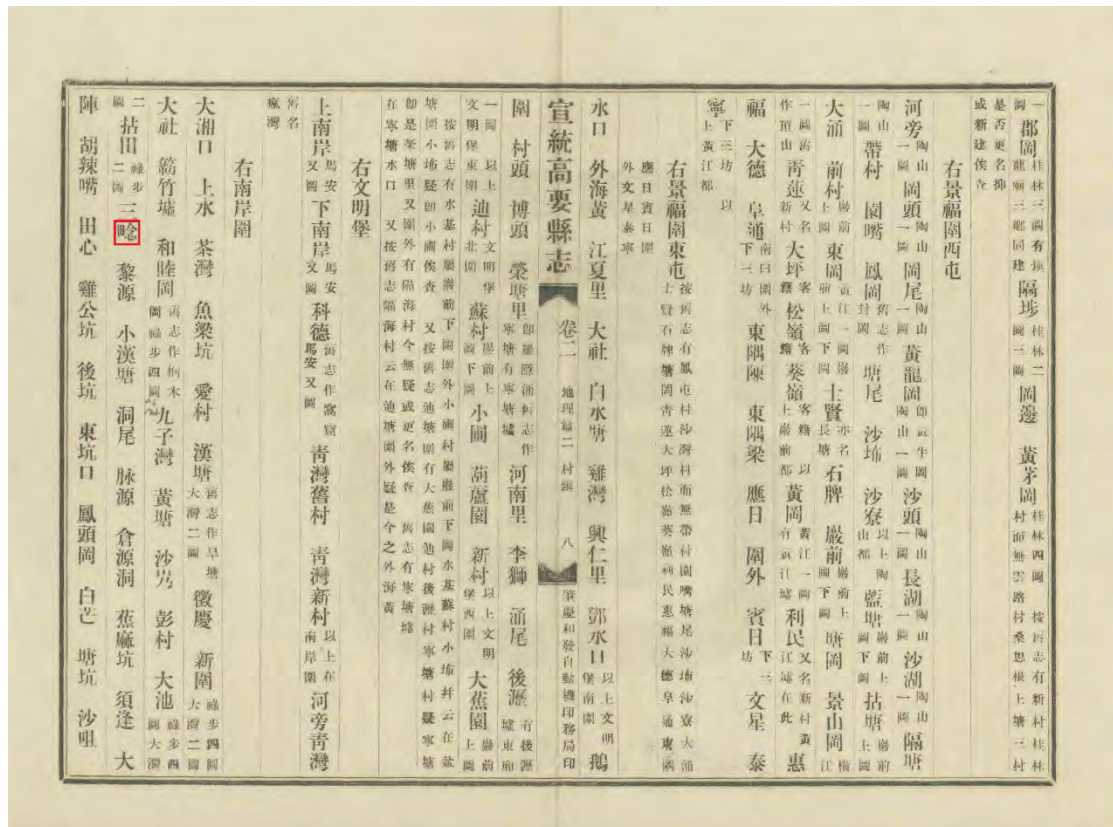 一 郡岡 桂林三圖有張 圖 龍廟三鄉同建 隔步 桂林二圖三圖 岡邊 黃茅岡 桂林四圖 按舊志有新村桂林村而無雲路村桑思根上塘三村
是否更名抑或新建俟查
右景福圍西屯
河旁 陶山一圖 岡頭 陶山一圖 岡尾 陶山一圖 黃龍岡 陶山一圖 沙頭 陶山一圖 長湖 陶山一圖 沙湖 陶山一圖 隔塘
陶山一圖 帶村 園嘴 鳳岡 舊志作封岡 塘尾 沙埗 沙寮 以上陶山都 藍塘 巖前上圖下圖 拈塘 巖前上圖
大涌 前村 巖前上圖 東岡 黃江一圖巖前上圖下圖 士賢 亦名長塘 石牌 巖前 巖前上圖下圖 塘岡 景山岡
一圖舊作頂山 青蓮 又名新村 大坪 客籍 松嶺 客籍 葵嶺 客籍 以上巖前都 黃岡 黃江一圖有黃江墟 利民 又名新村黃江墟在此 惠
福 大德 阜通 南曰圍外下三坊 東隅陳 東隅梁 應日 圍外 賓日 下三坊 文星 泰
寧 下三坊 以上黃江都
右景福圍東屯 按舊志有鳳屯村沙灣村而無帶村園嘴塘尾沙埗沙寮大涌士賢石牌塘岡青蓮大坪松嶺葵嶺利民惠福大德阜通東隅應日賓日圍外文星泰寧
水口 外海黃 江夏里 大社 白水塘 雞灣 興仁里 鄧水口 以上文明堡南圍 鵝
宣統高要縣志 卷二 地理篇二 村鎮 八 肇慶和發自動機印務局印
圍 村頭 博頭 榮塘里 河南里 李獅 涌尾 後瀝 有後瀝墟東廂
一圖 以上文明堡東圍 迪村 文明堡北圍 蘇村 巖前上圖下圖 小圃 葫蘆園 新村 以上文明堡西圍 大蕉園 巖前上圖
按舊志有水基村屬巖前下圖圍外小圃村屬巖前下圖水基蘇村小埗幷云在盆塘圍小埗疑卽小圃俟查 又按舊志迪塘圍有大蕉園迪村後瀝村寧塘村疑寧塘
卽是榮塘里又圍外有隔海村今無疑或更名俟查 舊志有寧塘墟在寧塘水口 又按舊志隔海村云在迪塘圍外疑是今之外海黃
右文明堡
上南岸 馬安又圖 下南岸 馬安又圖 科德 馬安又圖 青灣舊村 青灣新村 以上在南岸圍 河旁青灣
舊名瘋灣
右南岸圍
大湘口 上水 茶灣 魚梁坑 愛村 漢塘 舊志作旱塘大灣二圖 徵慶 新圍 祿步四圖大灣二圖
大社 簕竹墟 和睦岡 九子灣 黃塘 沙岃 彭村 大池 祿步四圖大灣
二圖 拈田 祿步二圖 三㽎 黎源 小漢塘 洞尾 脉源 倉源洞 蕉麻坑 須逢 大
陣 胡辣嘴 田心 雞公坑 後坑 東坑口 鳳頭岡 白芒 塘坑 沙咀